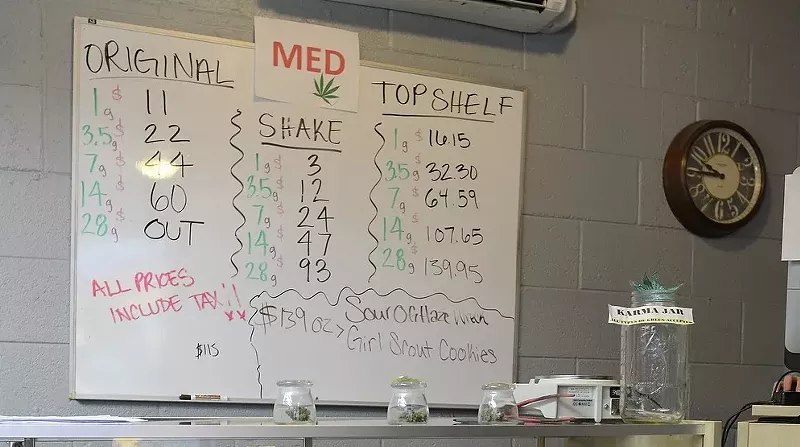 MED
ORIGINAL
1g $ 11
3.5g $ 22
7g $ 44
14g $ 60
28g $ OUT
ALL PRICES
INCLUDE TAX!!
$115
SHAKE
1g $ 3
3.5g $ 12
7g $ 24
14g $ 47
28g $ 93
TOP SHELF
1g $ 16.15
3.5g $ 32.30
7g $ 64.59
14g $ 107.65
28g $ 139.95
$139 oz > Sour OG Haze
Girl Scout Cookies
KARMA JAR